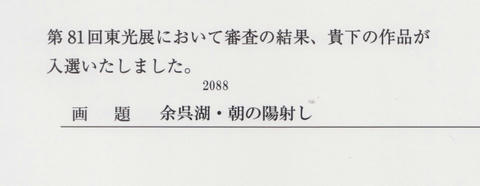 第81回東光展において審査の結果、貴下の作品が
入選いたしました。
2088
画 題 余呉湖・朝の陽射し